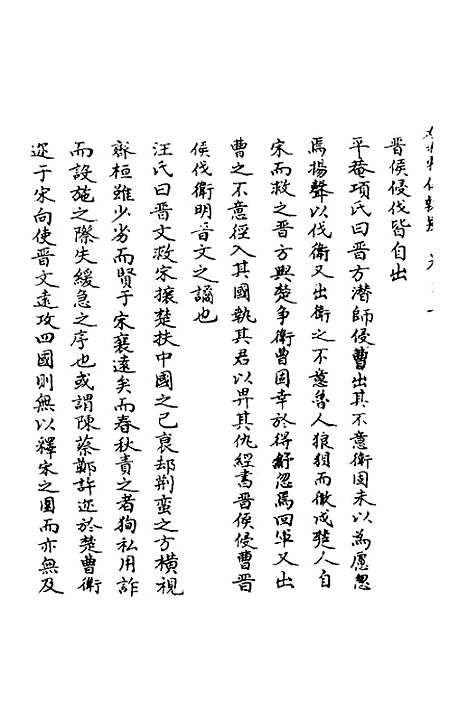 晋侯侵伐皆自出
平菴項氏曰晋方潜師侵曹出其不意衛固未以為慮忽
焉揚聲以伐衛又出衛之不意魯人狼狽而徹戍楚人自
宋而救之晋方與楚争衛曹固幸於得紓忽焉回军又出
曹之不意徑入其國執其君以畀其仇經書晋侯侵曹晋
侯伐衛明晋文之譎也
汪氏曰晋文救宋攘楚扶中國之已衰却荆蛮之方横視
齊桓雖少劣而賢于宋襄遠矣而春秋責之者狥私用詐
而設施之際失緩急之序也或謂陳蔡鄭許近於楚曹衛
近于宋向使晋文遠攻四國則無以釋宋之圍而亦無及